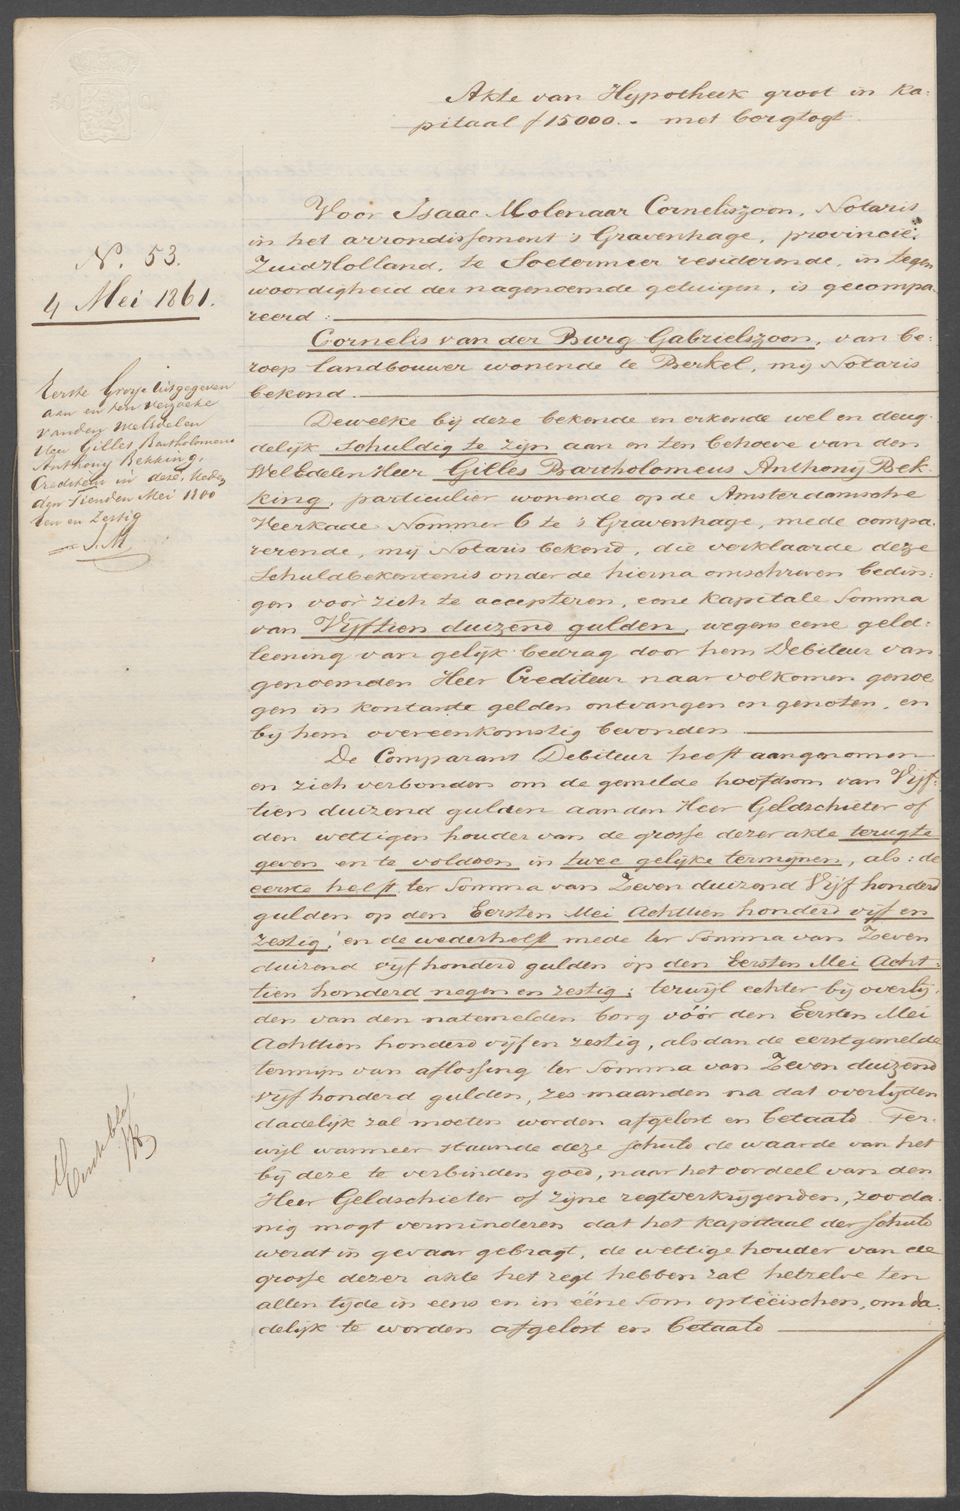 Akte van Hypotheek groot in ka-
pitaal f 15000.- met borgtogt.
N. 53.
4 Mei 1861.
Eerste Grosse uitgegeven
aan en ten verzoeke
van den Weledelen
Heer Gilles Bartholomeus
Anthonij Bekking,
Crediteur in deze, heden
den Tienden Mei 1800
een en Zestig
I.M
Voor Isaac Molenaar Corneliszoon, Notaris
in het arrondissement 's Gravenhage, provincie
Zuid Holland, te Soetermeer residerende, in tegen
woordigheid der nagenoemde getuigen, is gecompa-
reerd:
Cornelis van der Burg Gabrielszoon, van be-
roep landbouwer wonende te Berkel, mij Notaris
bekend.
Dewelke bij deze bekende en erkende wel en deug-
delijk schuldig te zijn aan en ten behoeve van den
WelEdelen Heer Gilles Bartholomeus Anthonij Bek-
king, particulier wonende op de Amsterdamsche
Veerkade Nommer 6 te 's Gravenhage, mede compa-
rerende, mij Notaris bekend, die verklaarde deze
schuldbekentenis onder de hierna omschreven bedin-
gen voor zich te accepteren, eene kapitale Somma
van Vijftien duizend gulden, wegens eene geld-
leening van gelijk bedrag door hem Debiteur van
genoemden Heer Crediteur naar volkomen genoe
gen in kontante gelden ontvangen en genoten, en
bij hem overeenkomstig bevonden
De Comparant Debiteur heeft aangenomen
en zich verbonden om de gemelde hoofdsom van Vijf-
tien duizend gulden aan den Heer Geldschieter of
den wettigen houder van de grosse dezer akte terugte
geven en te voldoen in twee gelijke termijnen, als: de
eerste helft ter Somma van Zeven duizend Vijf honderd
gulden op den Eersten Mei Achttien honderd vijf en
zestig; en de wederhelft mede ter Somma van Zeven
duizend vijf honderd gulden op den Eersten Mei Acht-
tien honderd negen en zestig; terwijl echter bij overlij-
den van den natemelden borg vóór den Eersten Mei
Achttien honderd vijf en zestig, als dan de eerstgemelde
termijn van aflossing ter Somma van Zeven duizend
vijf honderd gulden, zes maanden na dat overlijden
dadelijk zal moeten worden afgelost en betaald. Ter-
wijl wanneer staande deze schuld de waarde van het
bij deze te verbinden goed, naar het oordeel van den
Heer Geldschieter of zijne regtverkrijgenden, zooda-
nig mogt verminderen dat het kapitaal der schuld
werdt in gevaar gebragt, de wettige houder van de
grosse dezer akte het regt hebben zal hetzelve ten
allen tijde in eens en in ééne Som opteëischen, om da-
delijk te worden afgelost en betaald